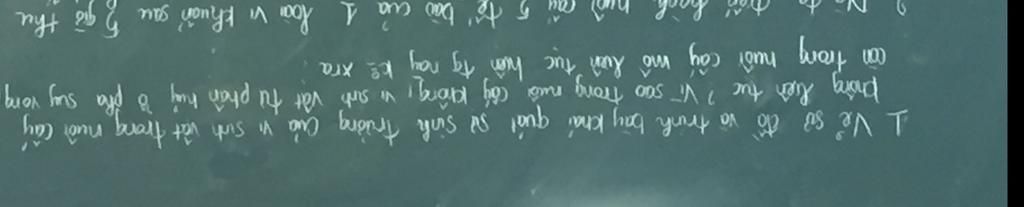 1 Vẽ sơ đồ và trình bày khái quát sự sinh trưởng của vi sinh vật trong nuôi cấy
không liên tục? Vì sao trong nuôi cấy không lt vi sinh vật tự phân huỷ ở pha suy vong
còn trong nuôi cấy mô liên tục hiện tg này kº xra.
2 cấy 5 tế bào của 1 loài vi khuẩn sau 5 giờ thu